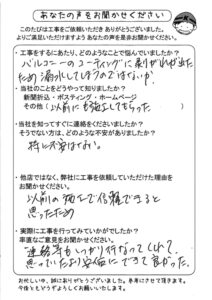 あなたの声をお聞かせください
このたびは工事をご依頼いただきありがとうございました。
よりご満足いただけますようあなたの声を是非お聞かせください。
・工事をするにあたり、どのようなことで悩んでいましたか?
バルコニーのコーティングに剥がれが出た
ため漏水してしまうのではないか?
・当社のことをどうやって知りましたか?
新聞折込・ポスティング・ホームページ
その他( 以前にも施工してもらった )
・当社を知ってすぐに連絡くださいましたか?
そうでない方は、どのような不安がありましたか?
特に不安はない。
・他店ではなく、弊社に工事を依頼していただけた理由を
お聞かせください
以前の施工で信頼できると
思ったため
・実際に工事を行ってみていかがでしたか?
率直なご意見をお聞かせください。
連絡等もしっかり行なってくれて、
思っていたより安価にできて良かった。
お忙しい中、誠にありがとうございました。参考にさせて頂きます。
今後ともどうぞよろしくお願いいたします。